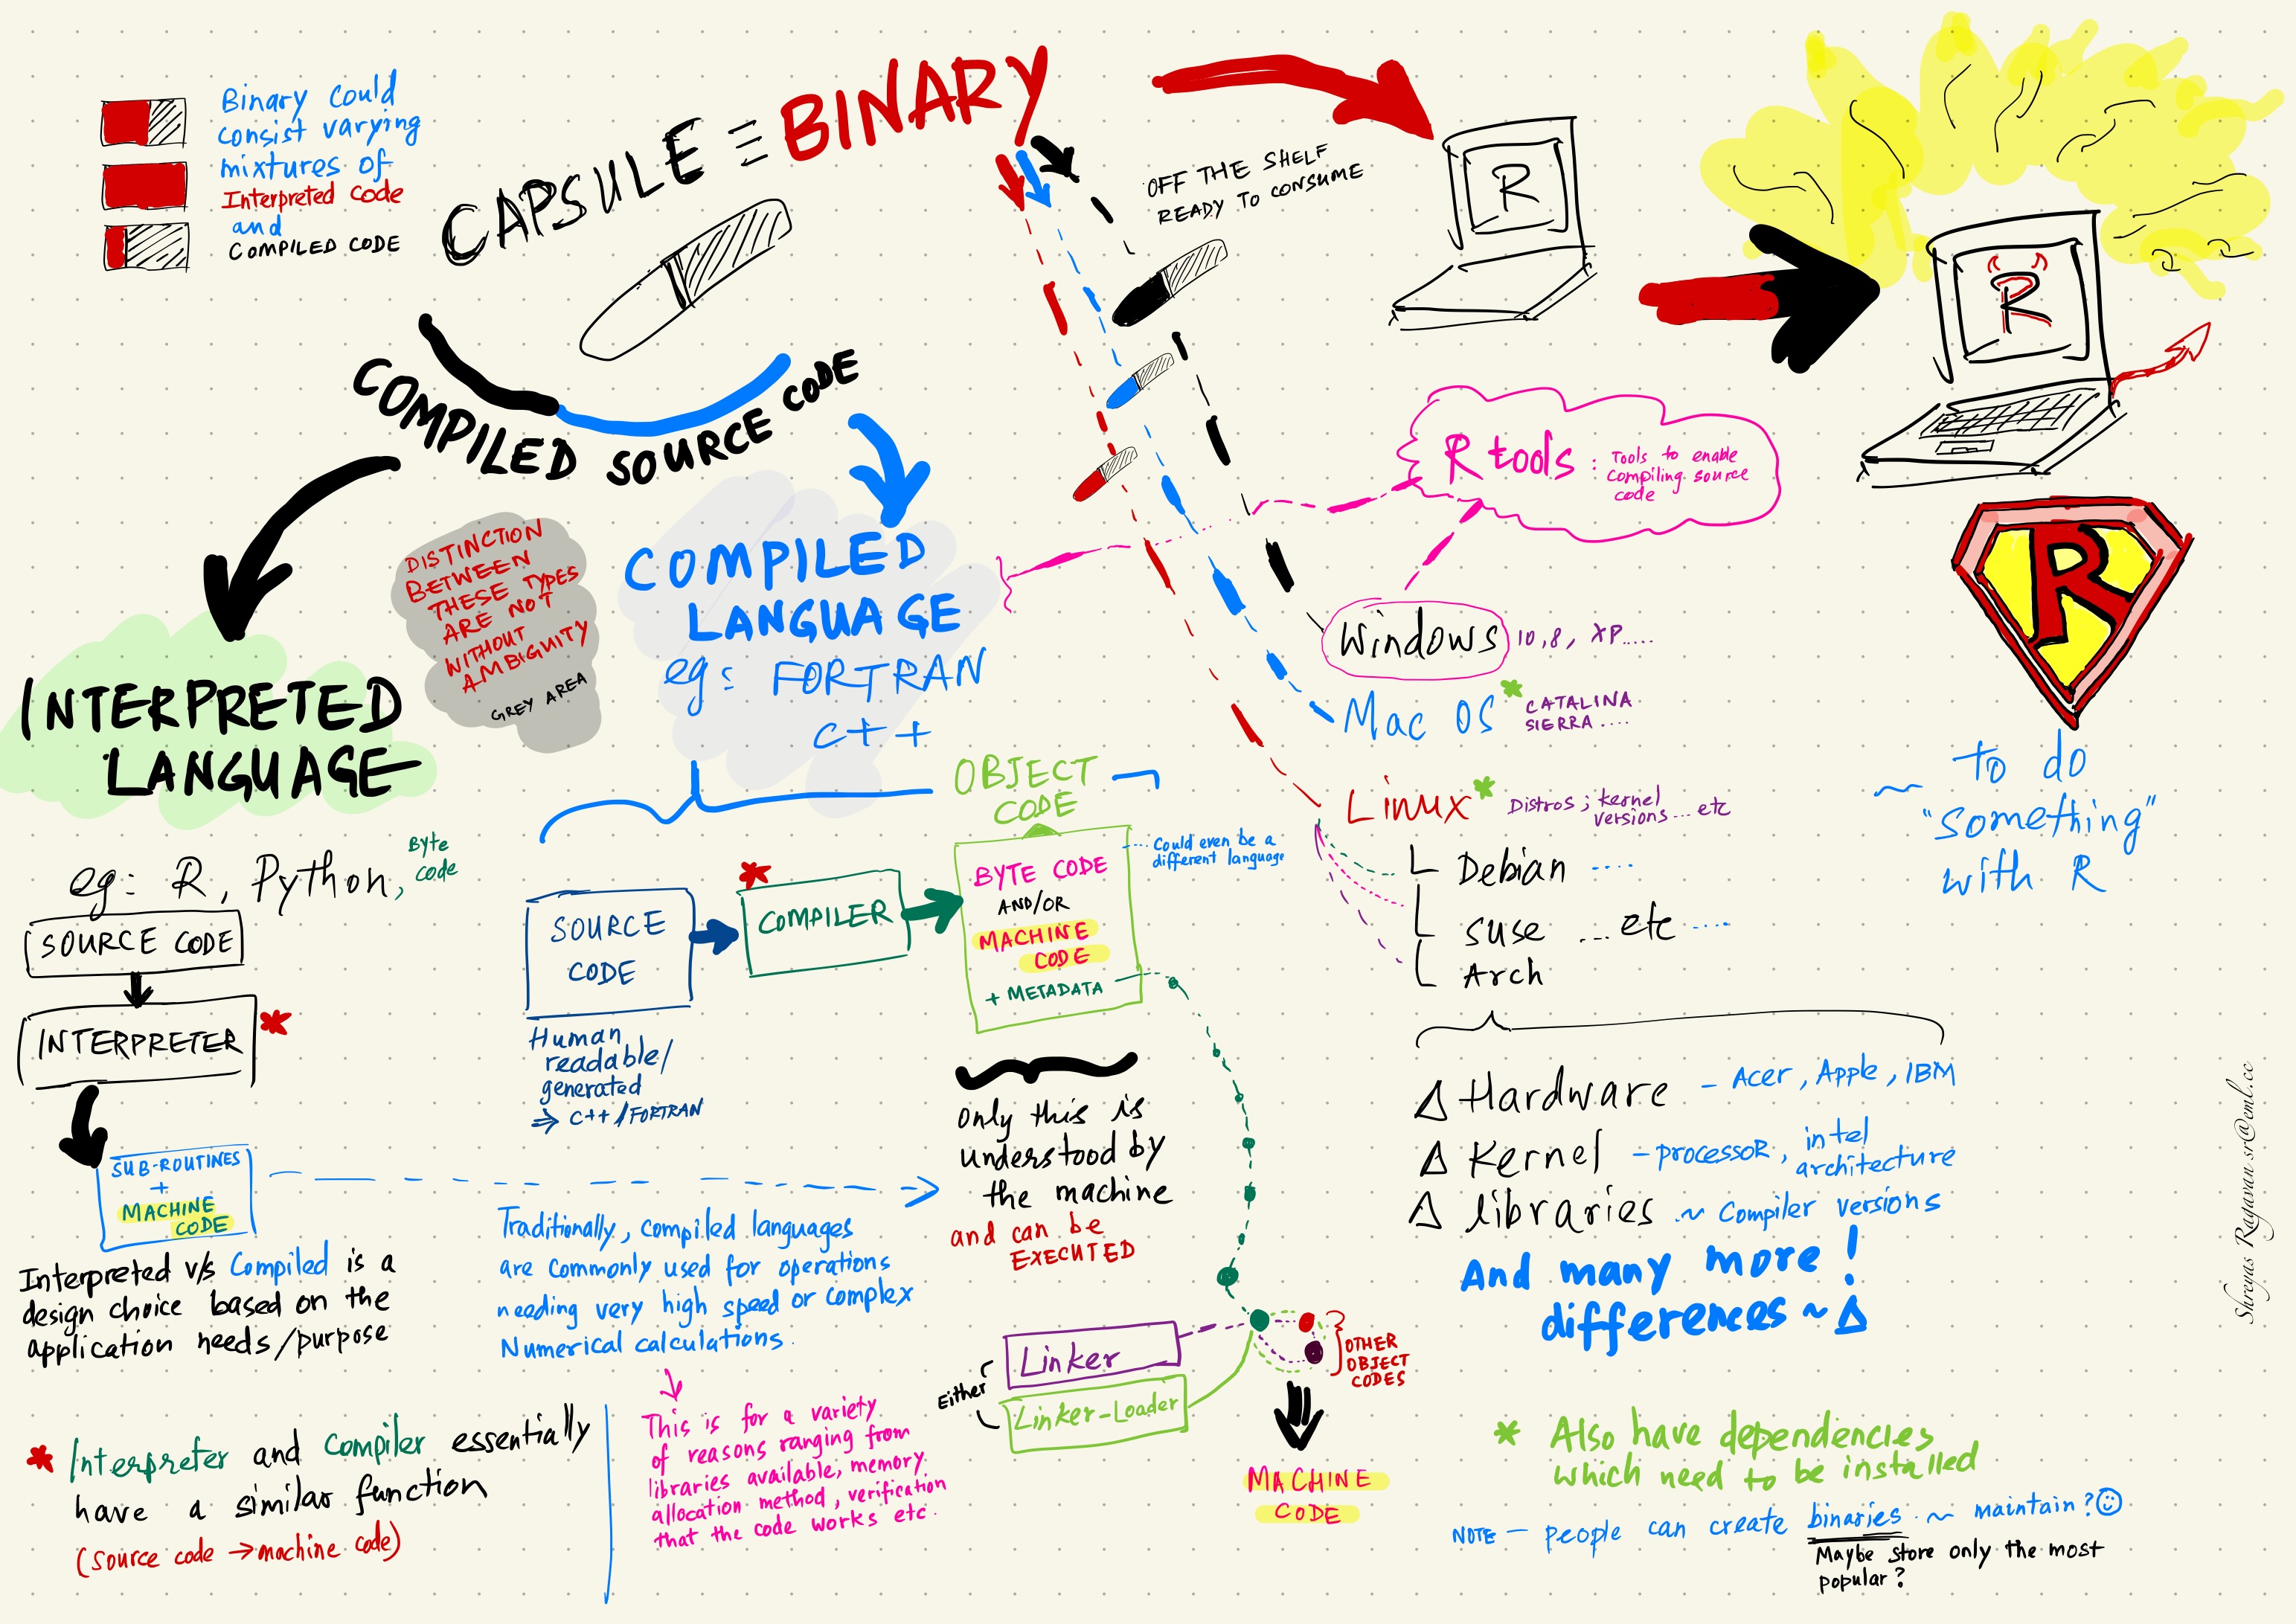 Binary Could
consist varying
mixtures of
Interpreted code
and
COMPILED CODE
CAPSULE ≡ BINARY
OFF THE SHELF
READY TO CONSUME
R
R
COMPILED SOURCE CODE
R tools : Tools to enable
compiling source
code
R
DISTINCTION
BETWEEN
THESE TYPES
ARE NOT
WITHOUT
AMBIGUITY
GREY AREA
COMPILED
LANGUAGE
eg: FORTRAN
C++
Windows 10, 8, XP.....
Mac OS * CATALINA
SIERRA ....
Linux * Distros ; kernel
versions ... etc
Debian ....
suse ... etc ....
Arch
~ To do
"something"
with R
INTERPRETED
LANGUAGE
eg: R, Python, Byte
code
SOURCE CODE
INTERPRETER *
SUB-ROUTINES
+
MACHINE
CODE
Interpreted v/s Compiled is a
design choice based on the
application needs/purpose
SOURCE
CODE
Human
readable/
generated
→ C++ / FORTRAN
*
COMPILER
OBJECT
CODE
BYTE CODE
AND/OR
MACHINE
CODE
+ METADATA
.... Could even be a
different language
Only this is
understood by
the machine
and can be
EXECUTED
Traditionally, compiled languages
are commonly used for operations
needing very high speed or complex
Numerical calculations.
This is for a variety
of reasons ranging from
libraries available, memory
allocation method, verification
that the code works etc.
Either
Linker
Linker-Loader
OTHER
OBJECT
CODES
MACHINE
CODE
* Interpreter and Compiler essentially
have a similar function
(source code → machine code)
Δ Hardware - Acer, Apple, IBM
Δ Kernel - processoR, intel
architecture
Δ libraries ~ Compiler versions
And many more!
differences ~ Δ
* Also have dependencies
which need to be installed
NOTE - people can create binaries ~ maintain? ☺
Maybe store only the most
popular?
Shreyas Ragavan sr@eml.cc